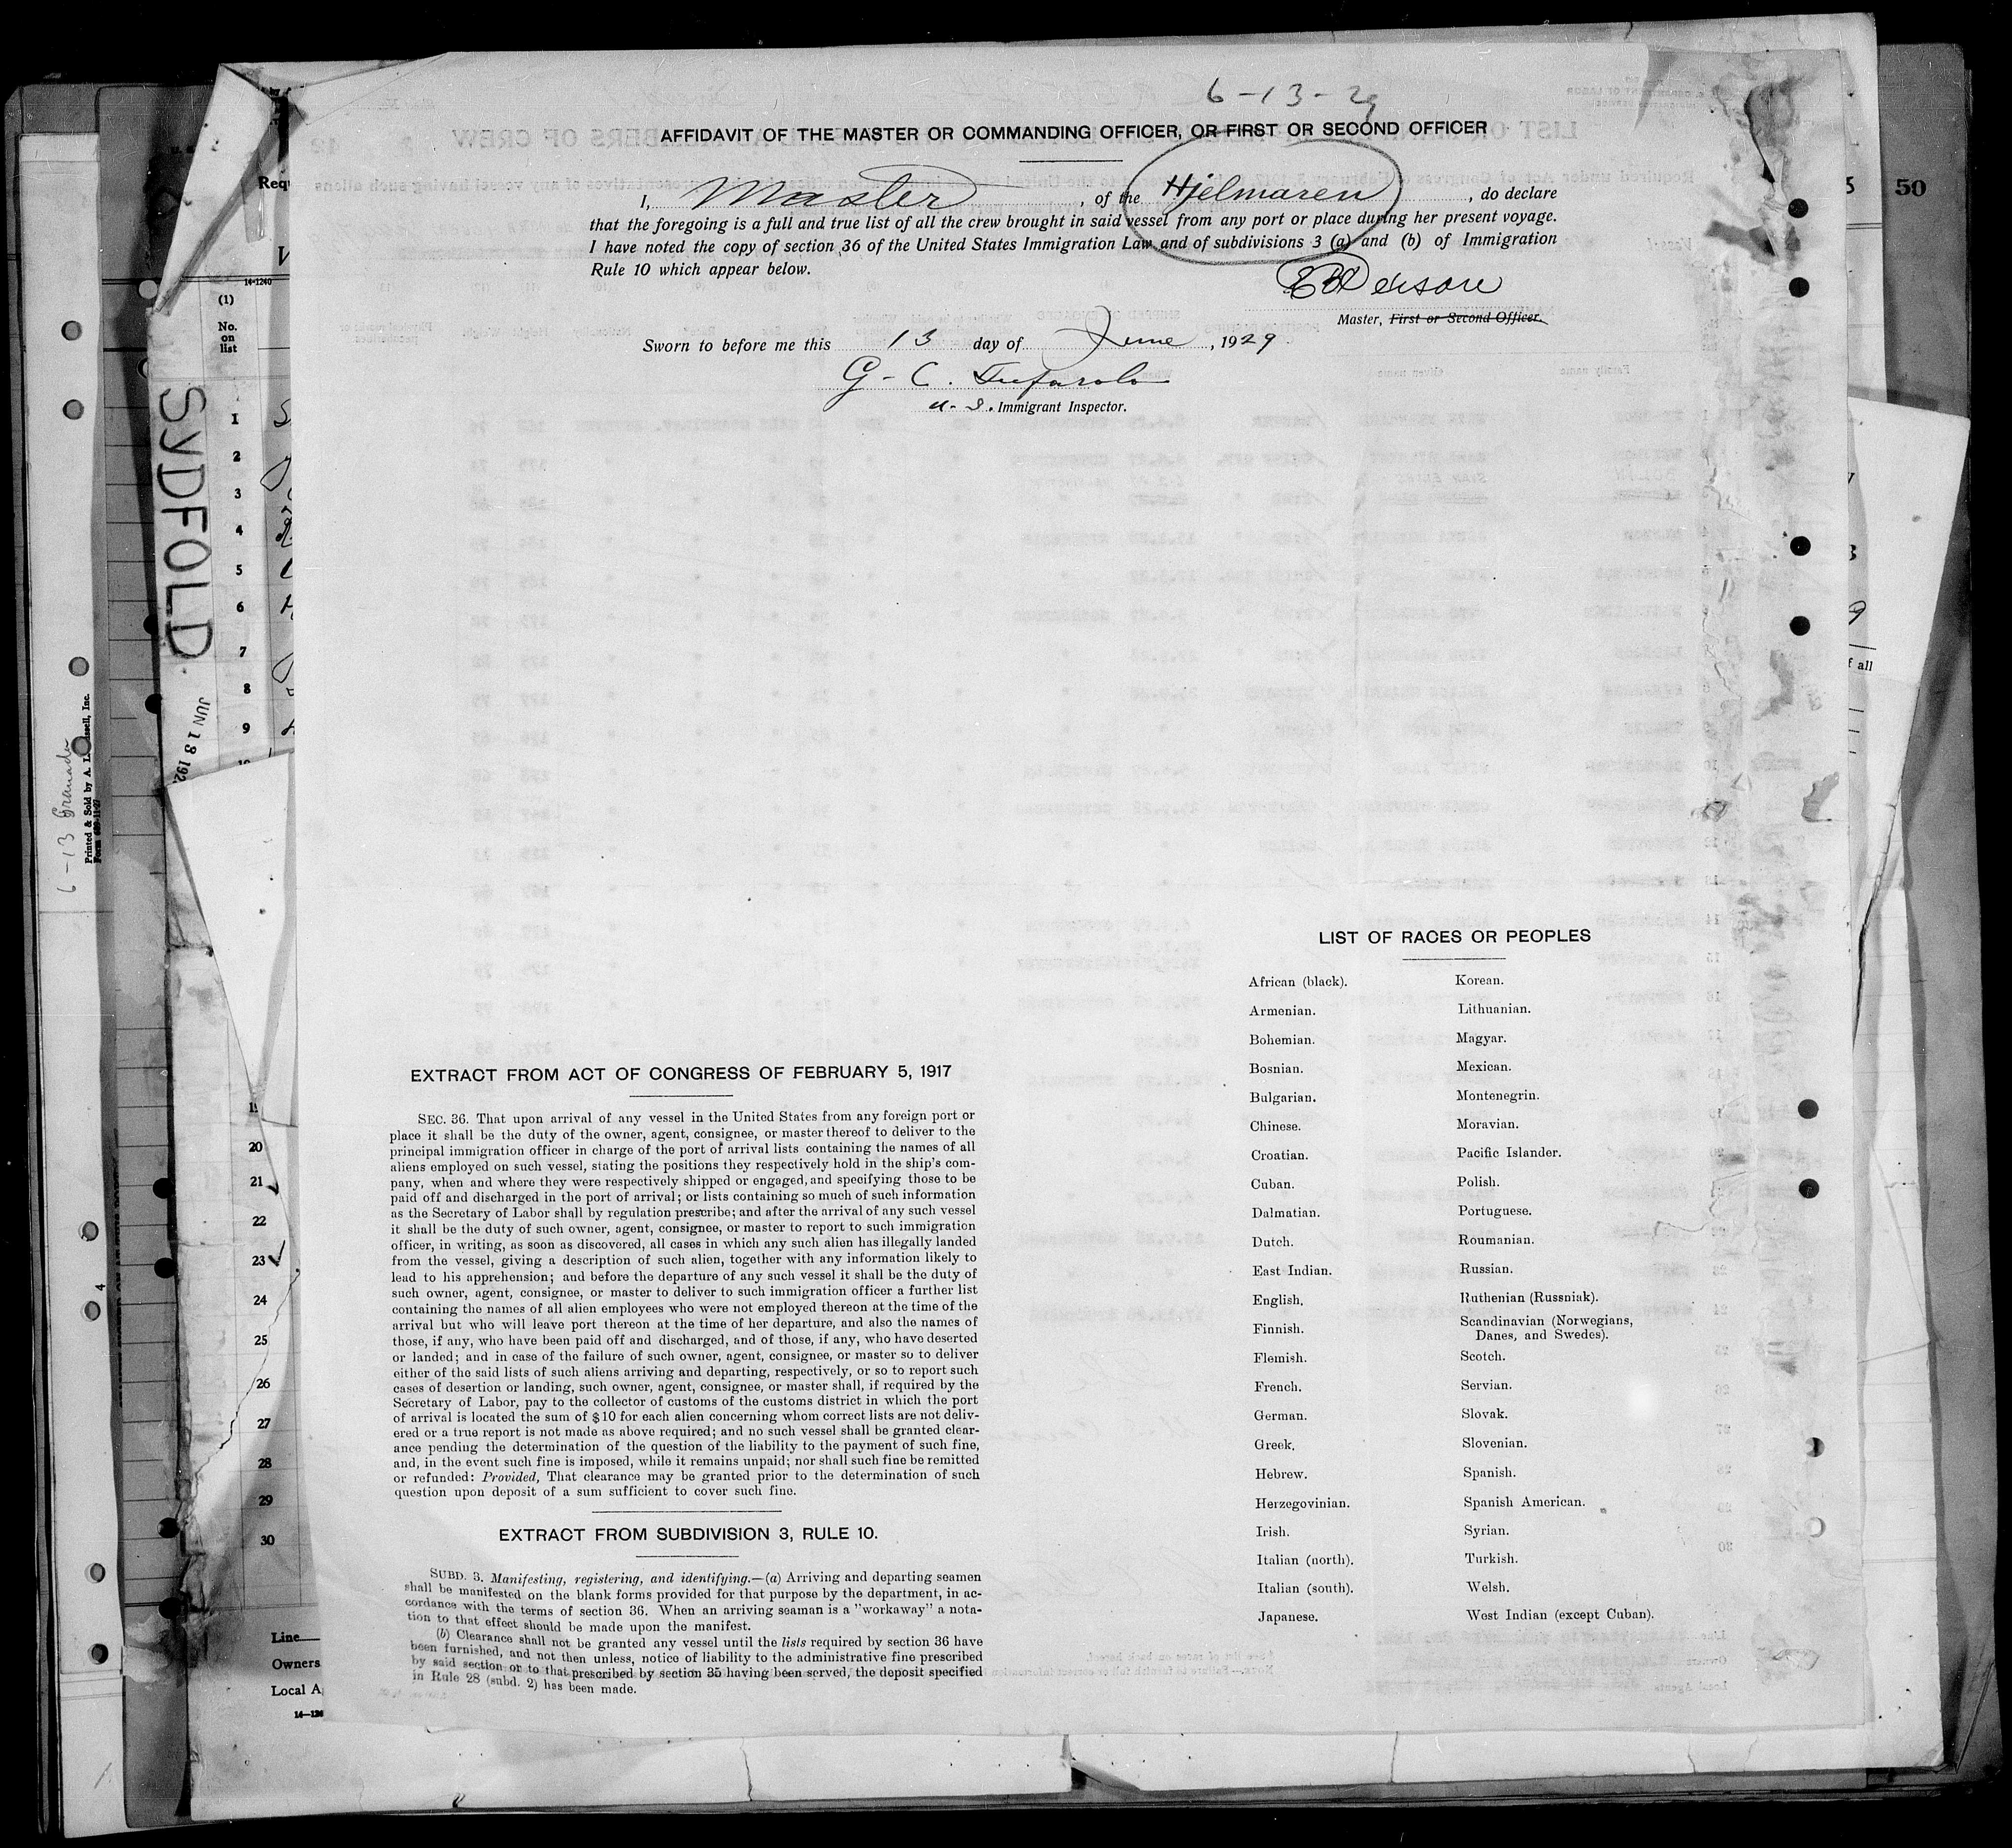 6-13-29
AFFIDAVIT OF THE MASTER OR COMMANDING OFFICER, OR FIRST OR SECOND OFFICER
I, Master, of the Hjelmaren, do declare
that the foregoing is a full and true list of all the crew brought in said vessel from any port or place during her present voyage.
I have noted the copy of section 36 of the United States Immigration Law and of subdivisions 3 (a) and (b) of Immigration
Rule 10 which appear below.
Master, First or Second Officer.
Sworn to before me this 13 day of June, 1929.
G-C.
U.S. Immigrant Inspector.
LIST OF RACES OR PEOPLES
African (black).
Armenian.
Bohemian.
Bosnian.
Bulgarian.
Chinese.
Croatian.
Cuban.
Dalmatian.
Dutch.
East Indian.
English.
Finnish.
Flemish.
French.
German.
Greek.
Hebrew.
Herzegovinian.
Irish.
Italian (north).
Italian (south).
Japanese.
Korean.
Lithuanian.
Magyar.
Mexican.
Montenegrin.
Moravian.
Pacific Islander.
Polish.
Portuguese.
Roumanian.
Russian.
Ruthenian (Russniak).
Scandinavian (Norwegians,
Danes, and Swedes).
Scotch.
Servian.
Slovak.
Slovenian.
Spanish.
Spanish American.
Syrian.
Turkish.
Welsh.
West Indian (except Cuban).
EXTRACT FROM ACT OF CONGRESS OF FEBRUARY 5, 1917
SEC. 36. That upon arrival of any vessel in the United States from any foreign port or
place it shall be the duty of the owner, agent, consignee, or master thereof to deliver to the
principal immigration officer in charge of the port of arrival lists containing the names of all
aliens employed on such vessel, stating the positions they respectively hold in the ship's com-
pany, when and where they were respectively shipped or engaged, and specifying those to be
paid off and discharged in the port of arrival; or lists containing so much of such information
as the Secretary of Labor shall by regulation prescribe; and after the arrival of any such vessel
it shall be the duty of such owner, agent, consignee, or master to report to such immigration
officer, in writing, as soon as discovered, all cases in which any such alien has illegally landed
from the vessel, giving a description of such alien, together with any information likely to
lead to his apprehension; and before the departure of any such vessel it shall be the duty of
such owner, agent, consignee, or master to deliver to such immigration officer a further list
containing the names of all alien employees who were not employed thereon at the time of the
arrival but who will leave port thereon at the time of her departure, and also the names of
those, if any, who have been paid off and discharged, and of those, if any, who have deserted
or landed; and in case of the failure of such owner, agent, consignee, or master so to deliver
either of the said lists of such aliens arriving and departing, respectively, or so to report such
cases of desertion or landing, such owner, agent, consignee, or master shall, if required by the
Secretary of Labor, pay to the collector of customs of the customs district in which the port
of arrival is located the sum of $10 for each alien concerning whom correct lists are not deliv-
ered or a true report is not made as above required; and no such vessel shall be granted clear-
ance pending the determination of the question of the liability to the payment of such fine,
and, in the event such fine is imposed, while it remains unpaid; nor shall such fine be remitted
or refunded: Provided, That clearance may be granted prior to the determination of such
question upon deposit of a sum sufficient to cover such fine.
EXTRACT FROM SUBDIVISION 3, RULE 10.
SUBD. 3. Manifesting, registering, and identifying.—(a) Arriving and departing seamen
shall be manifested on the blank forms provided for that purpose by the department, in ac-
cordance with the terms of section 36. When an arriving seaman is a "workaway" a nota-
tion to that effect should be made upon the manifest.
(b) Clearance shall not be granted any vessel until the lists required by section 36 have
been furnished, and not then unless, notice of liability to the administrative fine prescribed
by said section or to that prescribed by section 35 having been served, the deposit specified
in Rule 28 (subd. 2) has been made.
SYDFOLD.
JUN 18 192
6-13 Granada
Printed & Sold by A.
14-1240
(1)
No.
on
list
1
2
3
4
5
6
7
8
9
20
21
22
23
24
25
26
27
28
29
30
Line
Owners
Local A
50
f all
4